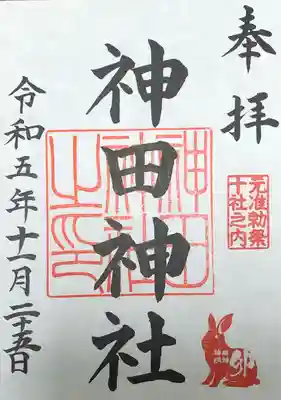 奉拝
元准勅祭
十社之内
卯
神田神社
神田
神社
之印
令和五年十一月二十五日